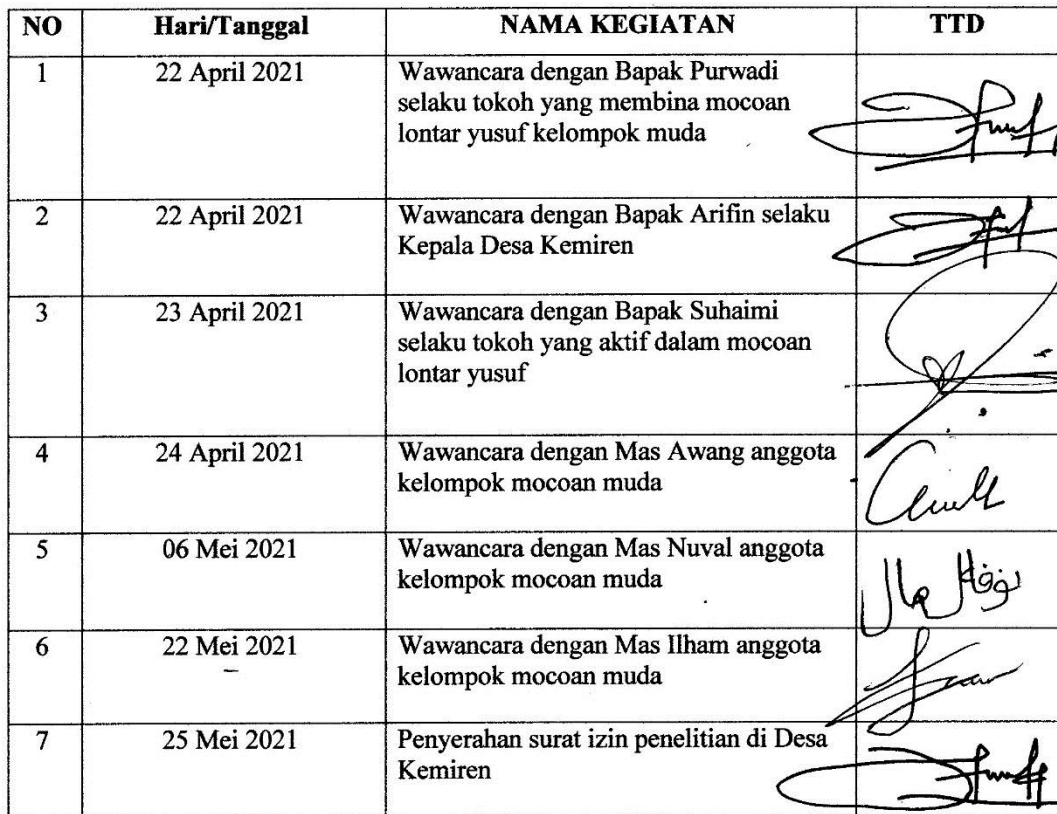 NO Hari/Tanggal NAMA KEGIATAN TTD
1 22 April 2021 Wawancara dengan Bapak Purwadi
selaku tokoh yang membina mocoan
lontar yusuf kelompok muda
2 22 April 2021 Wawancara dengan Bapak Arifin selaku
Kepala Desa Kemiren
3 23 April 2021 Wawancara dengan Bapak Suhaimi
selaku tokoh yang aktif dalam mocoan
lontar yusuf
4 24 April 2021 Wawancara dengan Mas Awang anggota
kelompok mocoan muda
5 06 Mei 2021 Wawancara dengan Mas Nuval anggota
kelompok mocoan muda
6 22 Mei 2021 Wawancara dengan Mas Ilham anggota
kelompok mocoan muda
7 25 Mei 2021 Penyerahan surat izin penelitian di Desa
Kemiren